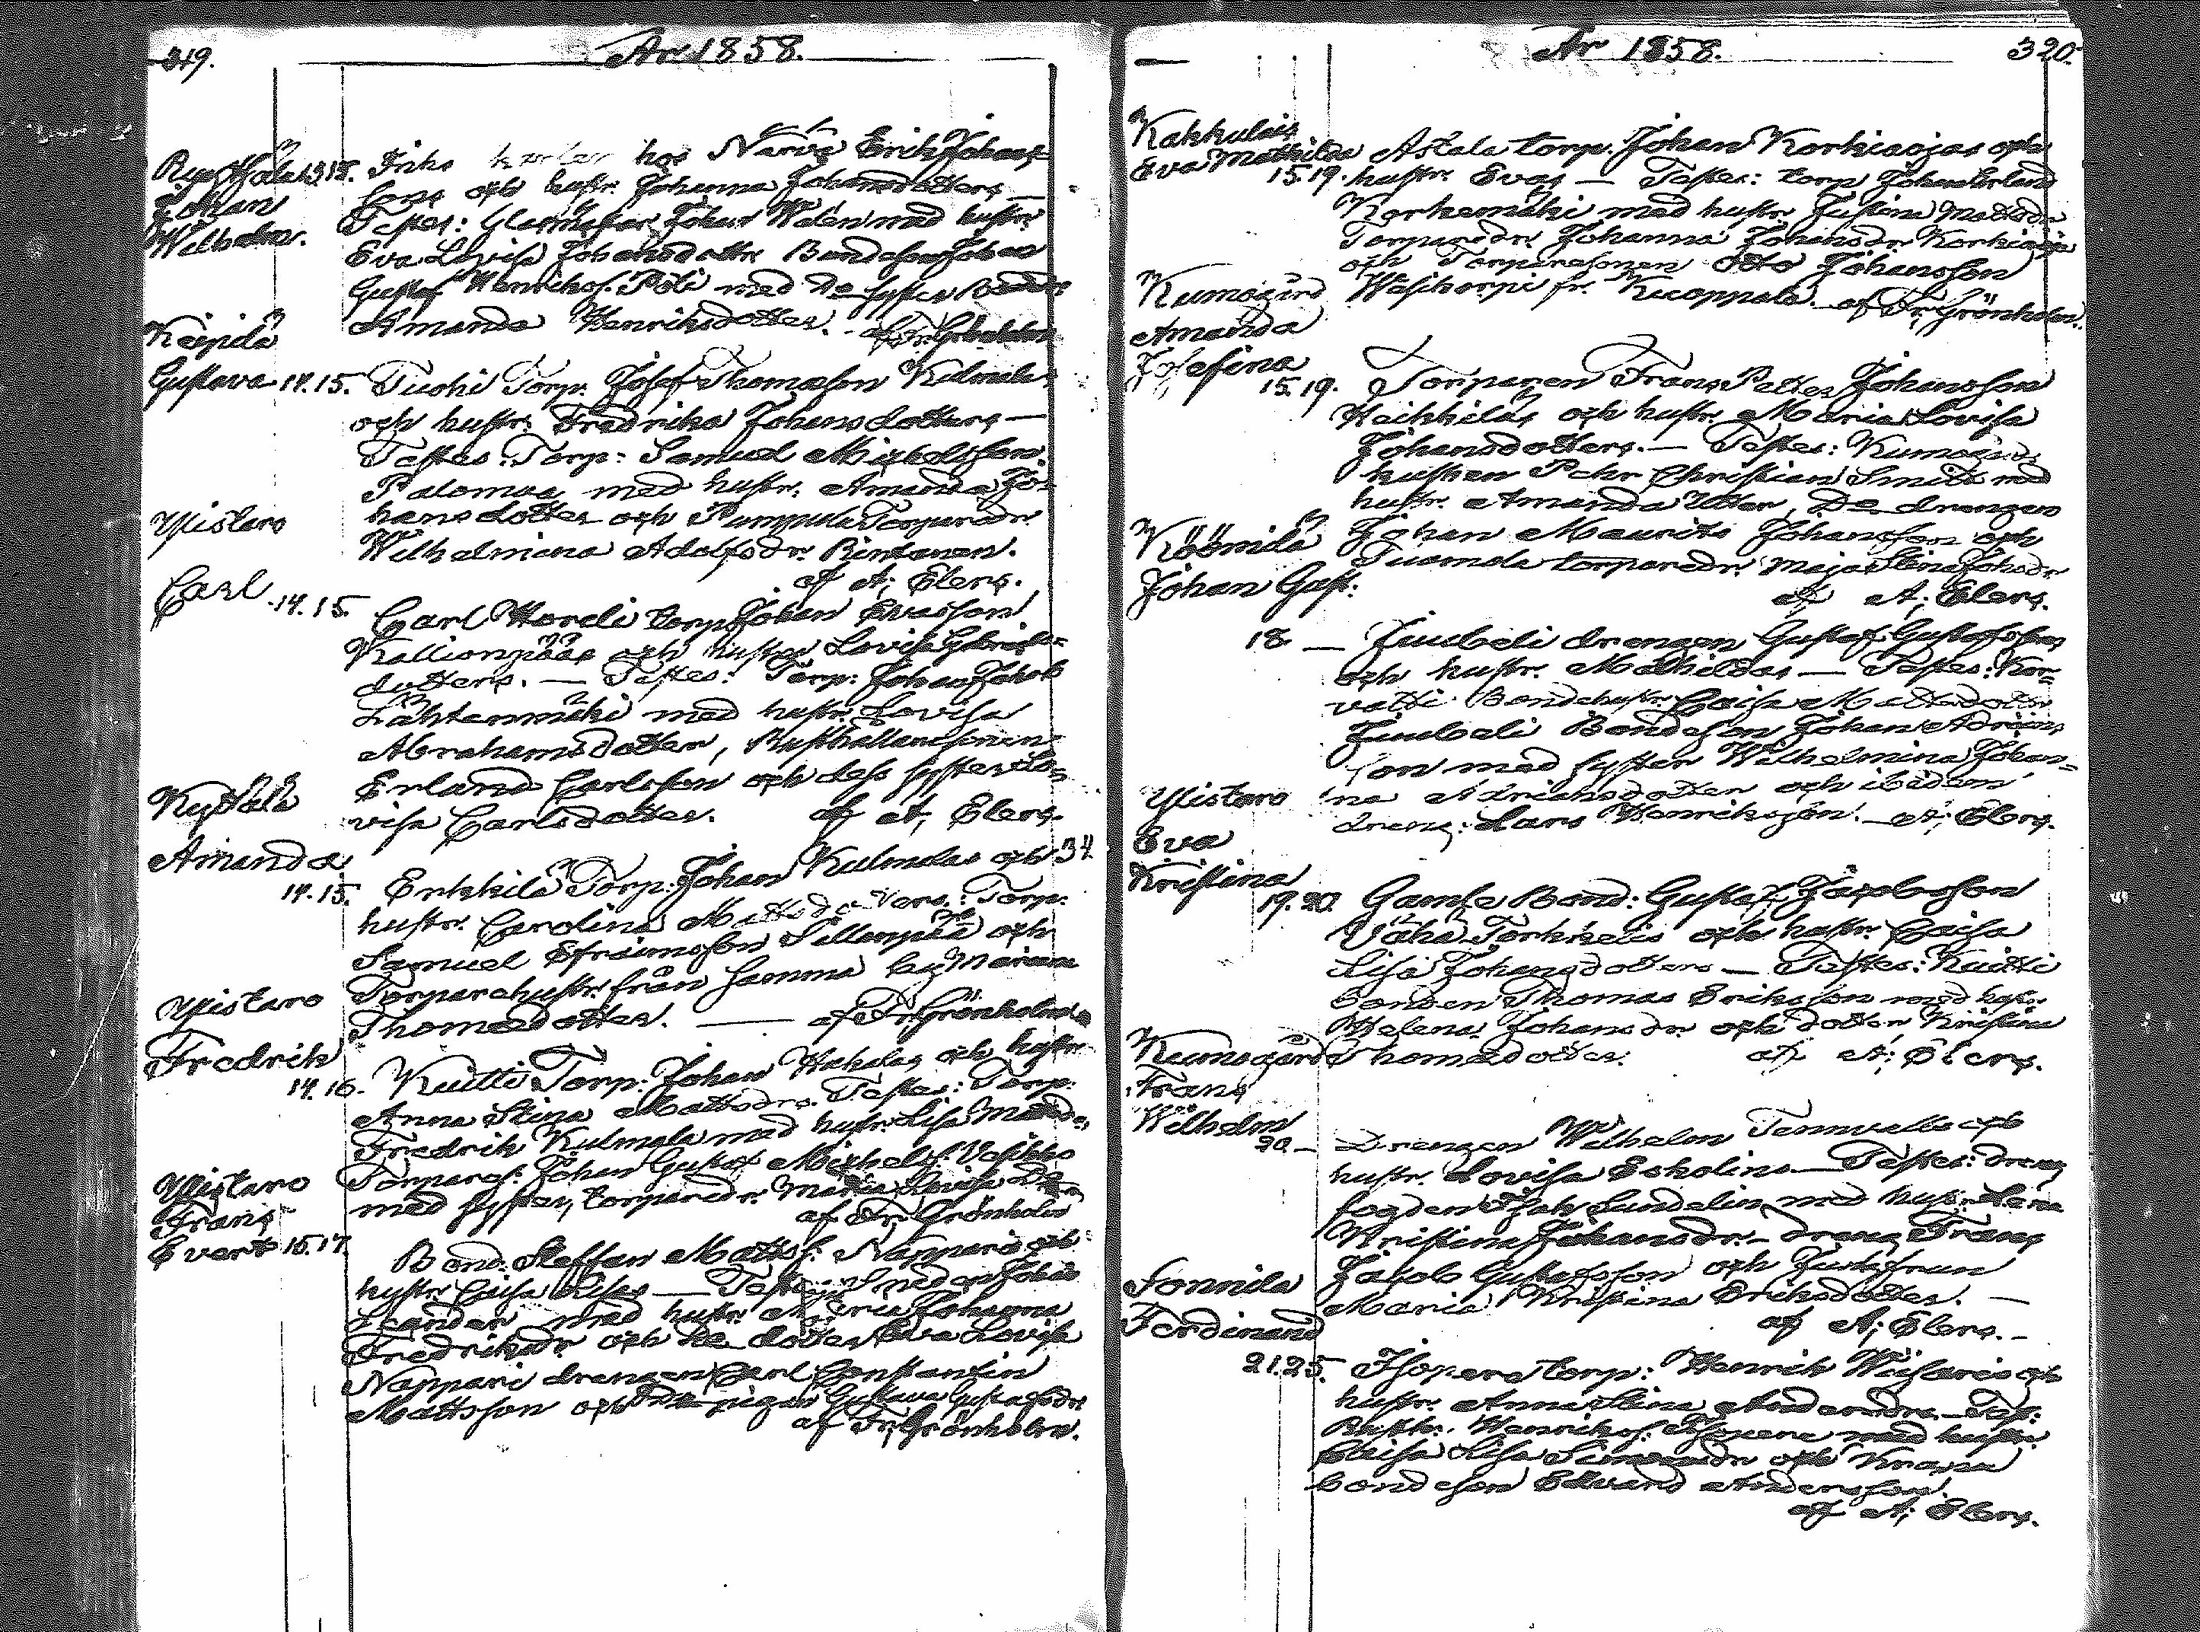 319.
År 1858.
Johan
Wilhelm.
13.15. hos Närvä Erik Johans-
sons och hustr. Johanna Johansdotters —
Testes: Johan Walén med hustr.
Eva Lovisa Johansdotter Bondeson Johan
Gustaf Henrikss. Pöli med syster
Amanda Henriksdotter. af Fr. Grönholm
Keipilä
Gustava 14.15. Tuohi Torp. Josef Thomasson Kulmala
och hustr. Fredrika Johansdotters —
Testes: Torp: Samuel Michelsson
Palomaa med hustr. Amanda Jo-
hansdotter och Pumpula Torparedr.
Wilhelmina Adolfsdr. Rintanen.
af A; Elers.
Ylistaro
Carl 14.15. Carl Hordi torp Johan Evasson
Kallionpääs och hustru Lovisa Gabriels-
dotters. — Testes: Torp: Johan Jakob
Lähtenmäki med hustr. Lovisa
Abrahamsdotter, Rusthållaresonen
Erland Carlsson och dess syster Lo-
visa Carlsdotter. af A; Elers.
Kyttälä
Amanda
14.15. Erkkilä Torp: Johan Kulmalas och 34
hustr. Carolina Mattsdotters: Torp.
Samuel Efraimsson Sillanpää och
Torparehustr. från samma by Maria
Thomasdotter. — af Fr. Grönholm
Ylistaro
Fredrik
14.16. Kuitti Torp: Johan Hakalas och hustr.
Anna Stina Mattsdrs. Testes: Torp:
Fredrik Kulmala med hustr. Lisa Mattsdr,
Torpares. Johan Gustaf Michelss. Vesikko
med syster, torparedr. Maria Lovisa
af Fr. Grönholm
Ylistaro
Frans
Evert 15.17. Bond: Staffan Mattss: Näppäri och
hustr. Caisa Lisas — Testes: Smeden Johan
Leander med hustr. Maria Johanna
Fredriksdr och dotter Eva Lovisa
Näppäri drengen Carl Constantin
Mattsson och pigan Gustava Gustafsdr
af Fr. Grönholm.
År 1858.
320.
Kakkulais
Eva Mathilda Astala torp. Johan Korkiaojas och
15.19. hustr. Evas — Testes: torp Johan Erland
Korkemäki med hustr. Justina Mattsdr
Torparedr. Johanna Johansdr Korkiaoja
och Torparesonen Otto Johansson
Wäsikorpi fr. Kuoppala. af Fr. Grönholm.
Kumogård
Amanda
Josefina
15.19. Torparen Frans Petter Johansson
Heikkiläs och hustr. Maria Lovisa
Johansdotters. — Testes: Kumogårds
Pehr Christian Smidt med
hustr. Amanda Utter, De drengen
Johan Maurits Johansson och
Tuomola torparedr. Maja Stina Johsdr
af A; Elers.
Köömilä
Johan Gust:
18. — Juubeli drengen Gustaf Gustafsson
och hustr. Mathildas — Testes: Kor-
vatti Bondehustr. Caisa Mattsdotter
Juubeli Bondeson Johan Adrians
son med syster Wilhelmina Johan-
na Adriansdotter och ibidem
dreng: Lars Henriksson. — A; Elers.
Ylistaro
Eva
Kristina
19.20. Gamle Bond: Gustaf Jacobsson
Vähä Torkkelis och hustr. Caisa
Lisa Johansdotters — Testes: Kuitti
bonden Thomas Eriksson med hustr.
Helena Johansdr och dotter Kristina
Thomasdotter. af A; Elers.
Kumogård
Frans
Wilhelm
20. — Drengen Wilhelm Tennvalls och
hustr. Lovisa Eskolins — Testes: dreng
fogden Isak Sundelin med hustr. Lena
Kristina Johansdr. — dreng Frans
Jacob Gustafsson och Jungfrun
Maria Kristina Eriksdotter. —
af A; Elers. —
Sonnila
Ferdinand
21.25. Isopere torp: Henrik Wisaris och
hustr. Anna Stina Andersdrs. — Test:
Rusth. Henrikss. Isopere med hustr.
Caisa Lisa Simonsdr och Krapu
bondeson Edvard Andersson.
af A; Elers.